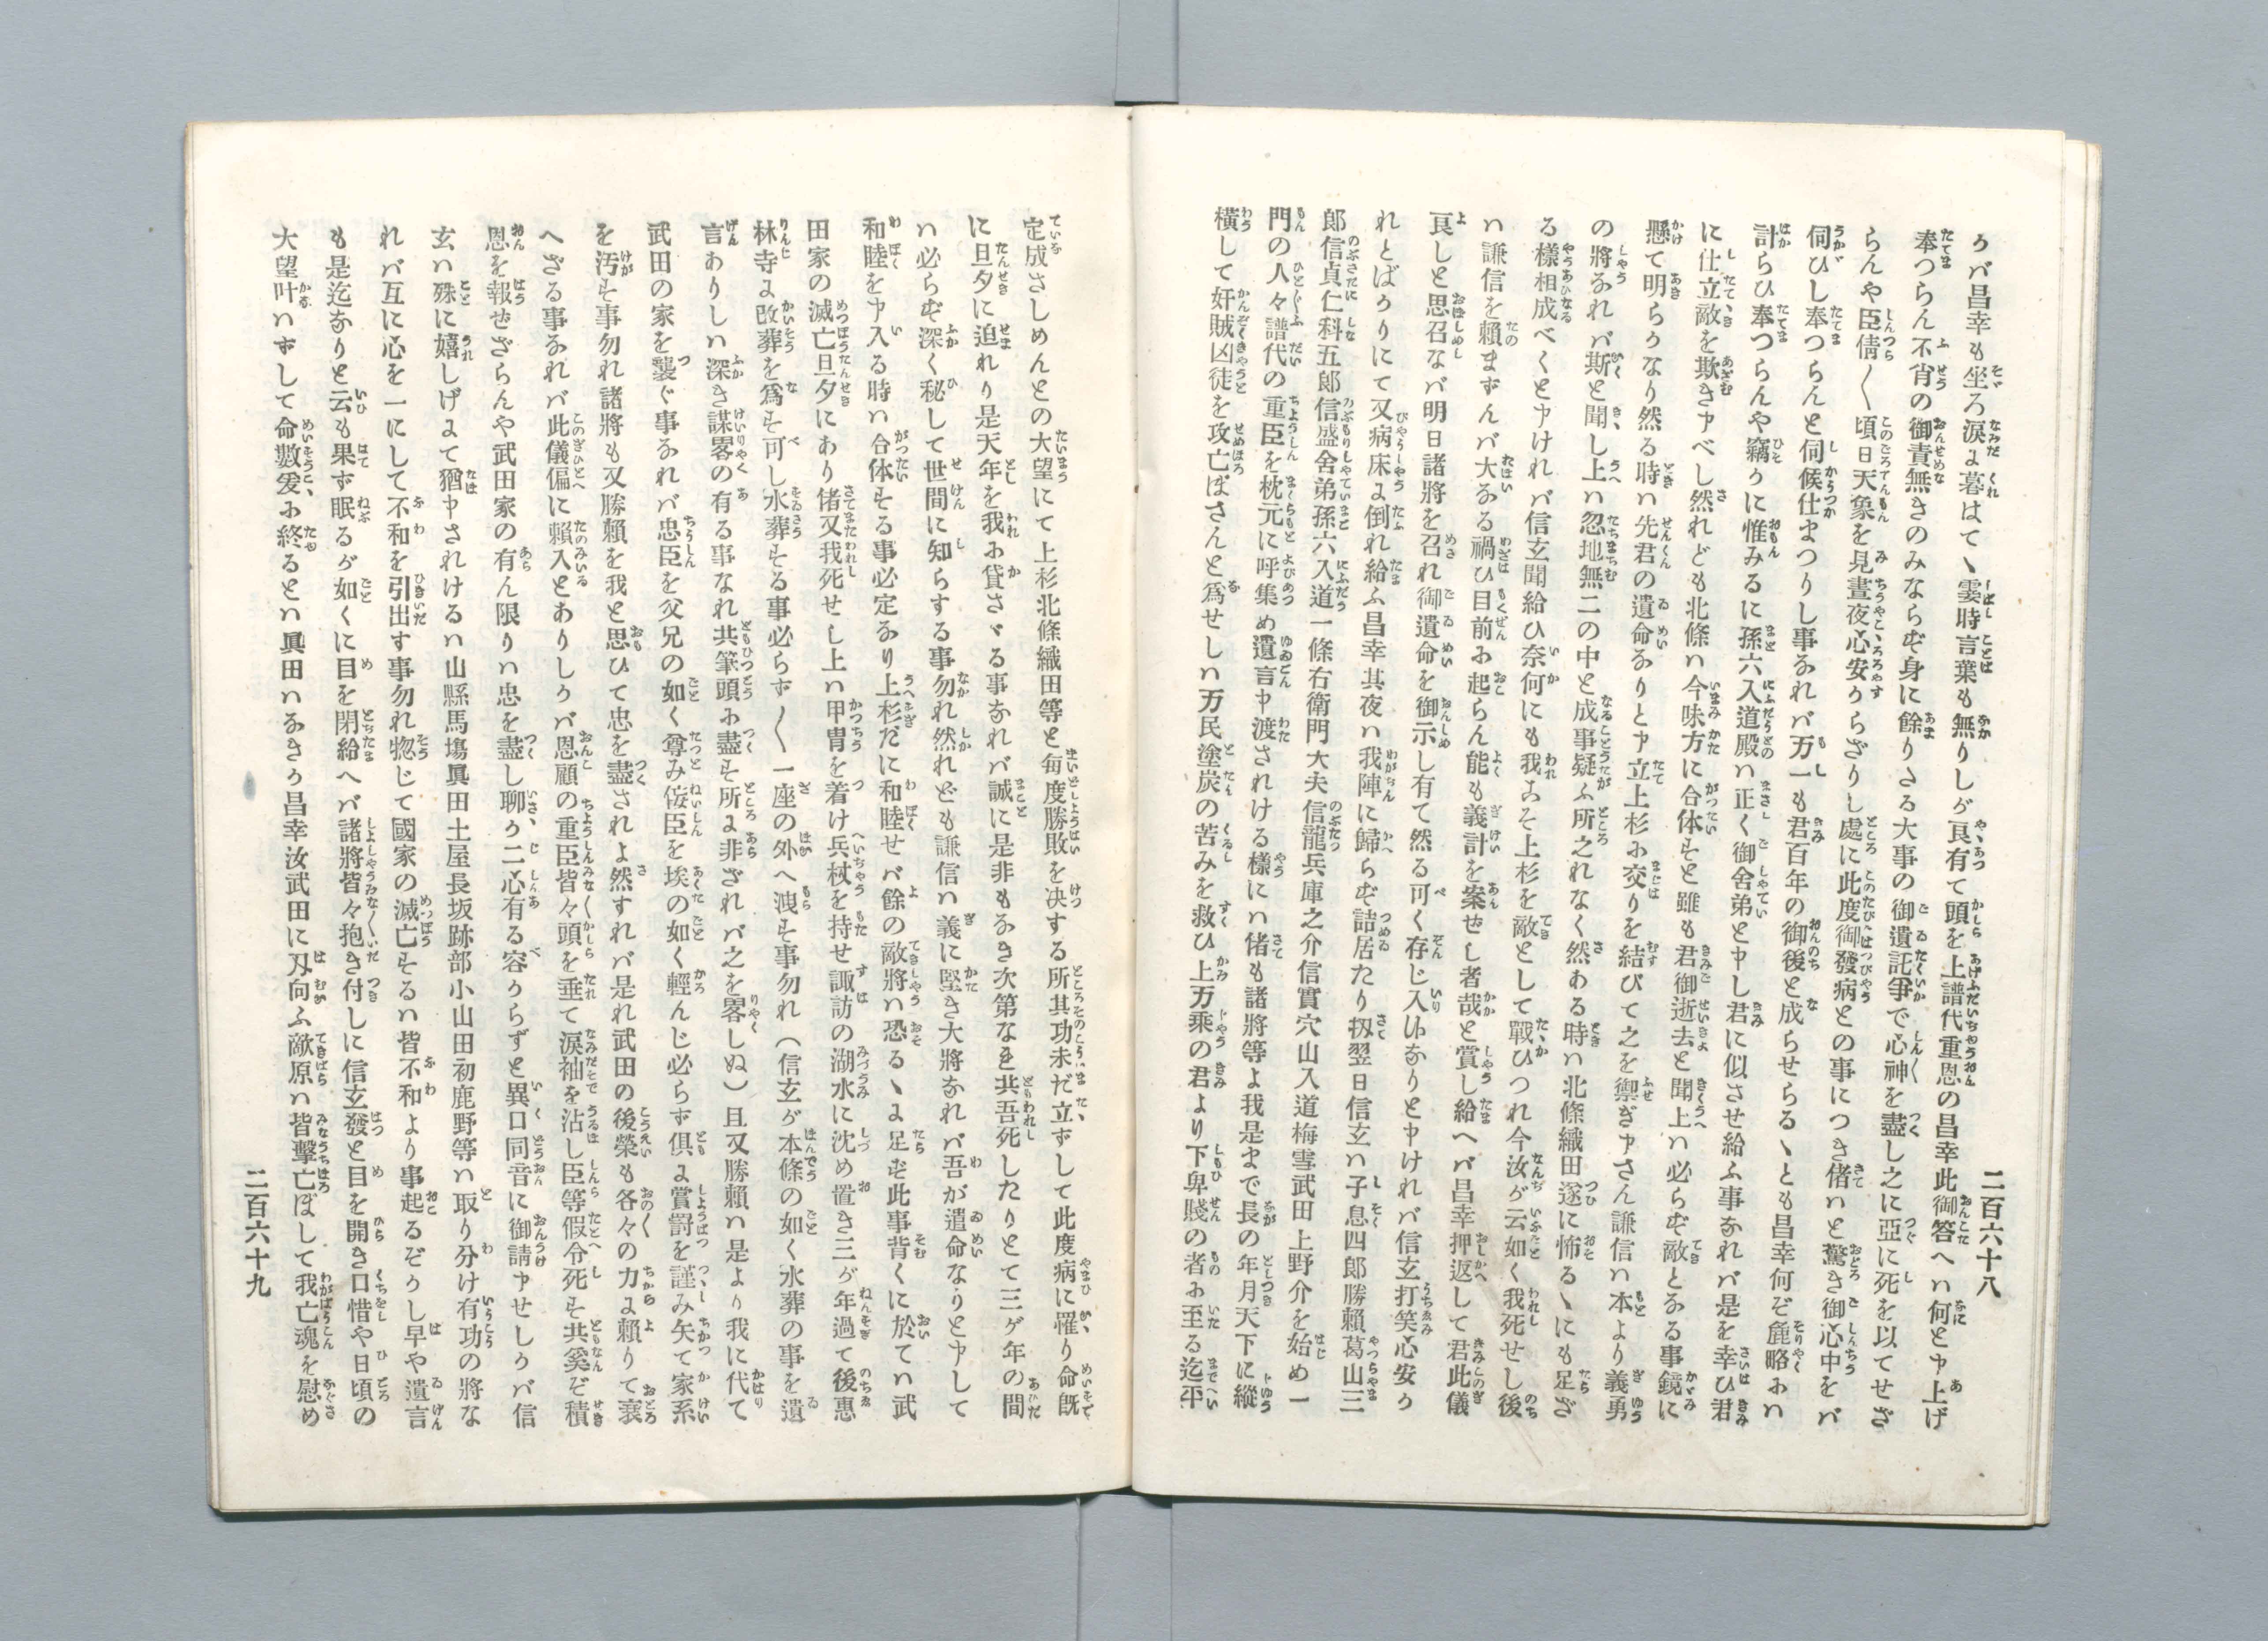 二百六十八
かバ昌幸も坐ろ涙よ暮はてヽ霎時言葉も無りしが良有て頭を上譜代重恩の昌幸此御答へハ何と申上げ
奉つらん不肖の御責無きのみならず身に餘りたる大事の御遺託爭で心神を盡し之に亞に死を以てせざ
らんや臣倩〱頃日天象を見晝夜心安からざりし處に此度御發病との事につき偖ハと驚き御心中をバ
伺ひし奉つらんと伺候仕まつりし事なれバ万一も君百年の御後と成らせらるヽとも昌幸何ぞ麁略にハ
計らひ奉つらんや竊かに惟みるに孫六入道殿ハ正く御舍弟と申し君に似させ給ふ事なれバ是を幸ひ君
に仕立敵を欺き申べし然れども北條ハ今味方に合体すと雖も君御逝去と聞上ハ必らず敵となる事鏡に
懸て明らかなり然る時ハ先君の遺命なりと申立上杉に交りを結びて之を禦ぎ申さん謙信ハ本より義勇
の將なれバ斯と聞し上ハ忽地無二の中と成事疑ふ所之れなく然ある時ハ北條織田遂に怖るヽにも足ざ
る樣相成べくと申けれバ信玄聞給ひ奈何にも我こそ上杉を敵として戰ひつれ今汝が云如く我死せし後
ハ謙信を賴まずんバ大なる禍ひ目前に起らん能も義計を案せし者哉と賞し給へバ昌幸押返して君此儀
良しと思召なバ明日諸將を召れ御遺命を御示し有て然る可く存じ入いなりと申けれバ信玄打笑心安か
れとばかりにて又病床よ倒れ給ふ昌幸其夜ハ我陣に歸らず詰居たり扨翌日信玄ハ子息四郎勝賴葛山三
郎信貞仁科五郎信盛舍弟孫六入道一條右衛門大夫信龍兵庫之介信實穴山入道梅雪武田上野介を始め一
門の人々譜代の重臣を枕元に呼集め遺言申渡されける樣にハ偖も諸將等よ我是まで長の年月天下に縱
橫して奸賊凶徒を攻亡ぼさんと爲せしハ万民塗炭の苦みを救ひ上万乘の君より下卑賤の者に至る迄平
定成さしめんとの大望にて上杉北條織田等と每度勝敗を决する所其功未だ立ずして此度病に罹り命既
に旦夕に迫れり是天年を我に貸さヾる事なれバ誠に是非もなき次第なを共吾死したりとて三ゲ年の間
ハ必らず深く秘して世間に知らする事勿れ然れども謙信ハ義に堅き大將なれバ吾が遺命なりと申して
和睦を申入る時ハ合体する事必定なり上杉だに和睦せバ餘の敵將ハ恐るヽよ足ず此事背くに於てハ武
田家の滅亡旦夕にあり偖又我死せし上ハ甲冑を着け兵杖を持せ諏訪の湖水に沈め置き三ゲ年過て後惠
林寺よ改葬を爲す可し水葬する事必らず〱一座の外へ洩す事勿れ（信玄が本條の如く水葬の事を遺
言ありしハ深き謀畧の有る事なれ共筆頭に盡す所よ非ざれバ之を畧しぬ）且又勝賴ハ是より我に代て
武田の家を襲ぐ事なれバ忠臣を父兄の如く尊み侫臣を埃の如く輕んじ必らず倶よ賞罰を謹み矢て家系
を汚す事勿れ諸將も又勝賴を我と思ひて忠を盡されよ然すれバ是れ武田の後榮も各々の力よ賴りて衰
へざる事なれバ此儀偏に賴入とありしかバ恩顧の重臣皆々頭を垂て涙袖を沾し臣等假令死す共奚ぞ積
恩を報ぜざらんや武田家の有ん限りハ忠を盡し聊か二心有る容からずと異口同音に御請申せしかバ信
玄ハ殊に嬉しげよて猶申されけるハ山縣馬塲眞田土屋長坂跡部小山田初鹿野等ハ取り分け有功の將な
れバ互に心を一にして不和を引出す事勿れ惣じて國家の滅亡するハ皆不和より事起るぞかし早や遺言
も是迄なりと云も果ず眠るが如くに目を閉給へバ諸將皆々抱き付しに信玄發と目を開き口惜や日頃の
大望叶ハずして命數爰に終るとハ眞田ハなきか昌幸汝武田に刄向ふ敵原ハ皆擊亡ぼして我亡魂を慰め
二百六十九